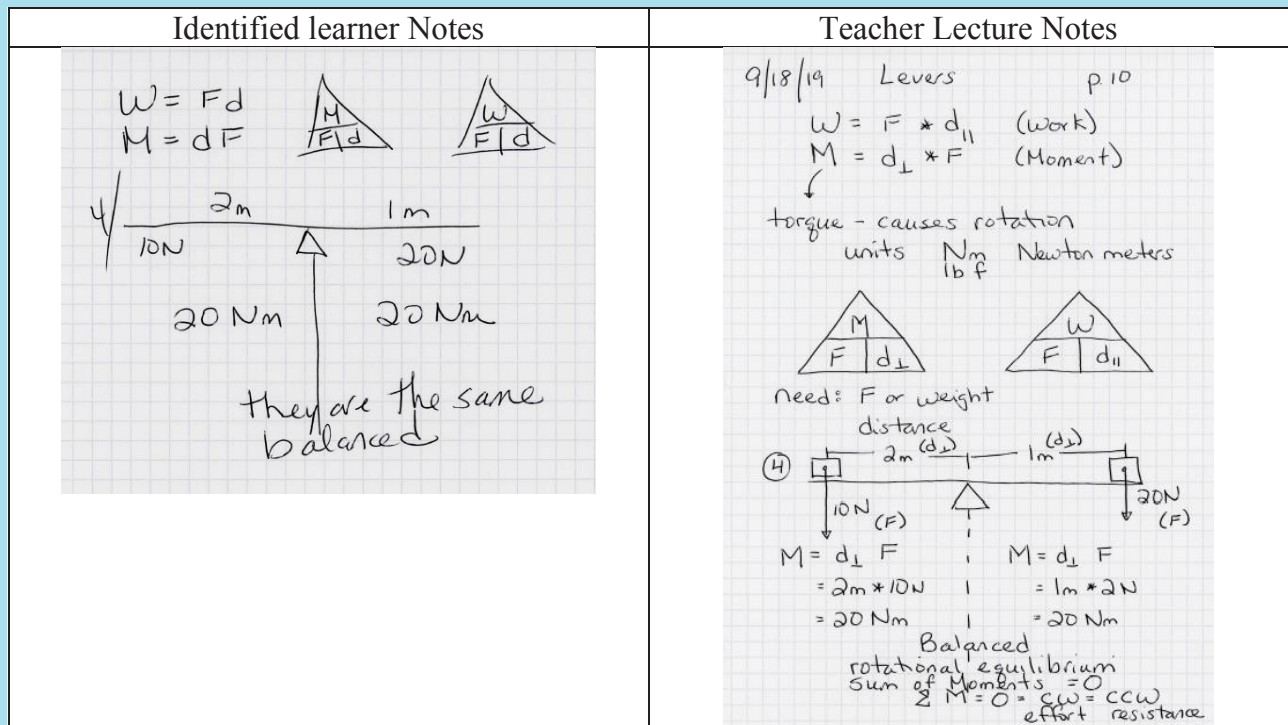 Identified learner Notes
W = Fd
M = dF
M
F | d
W
F | d
4/
2m
1m
10N
20N
20 Nm
20 Nm
they are the same
balanced
Teacher Lecture Notes
9/18/19 Levers p. 10
W = F * d|| (Work)
M = d⊥ * F (Moment)
torque - causes rotation
units Nm Newton meters
lb f
M
F | d⊥
W
F | d||
need: F or weight
distance
④ 2m (d⊥) 1m (d⊥)
10N (F)
20N (F)
M = d⊥ F
= 2m * 10N
= 20 Nm
M = d⊥ F
= 1m * 2N
= 20 Nm
Balanced
rotational equilibrium
sum of Moments = 0
Σ M = 0 = CW = CCW
effort resistance